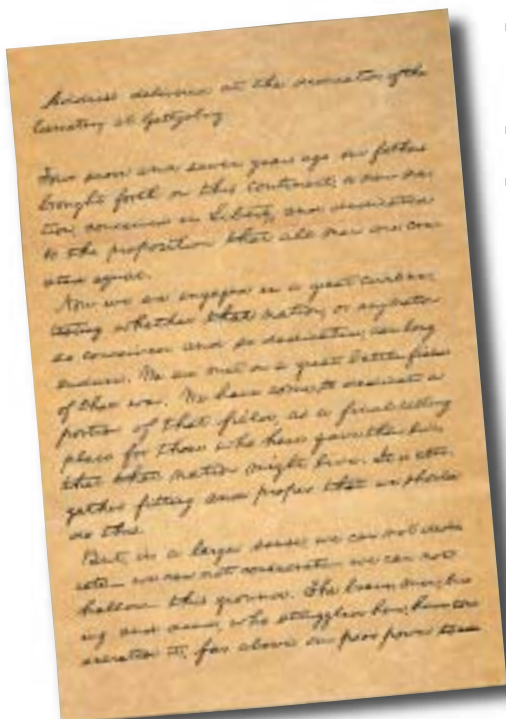 Address delivered at the dedication of the
Cemetery at Gettysburg
Four score and seven years ago our fathers
brought forth on this continent, a new na-
tion, conceived in Liberty, and dedicated
to the proposition that all men are cre-
ated equal.
Now we are engaged in a great civil war,
testing whether that nation, or any nation
so conceived and so dedicated, can long
endure. We are met on a great battle-field
of that war. We have come to dedicate a
portion of that field, as a final resting
place for those who here gave their lives
that that nation might live. It is alto-
gether fitting and proper that we should
do this.
But, in a larger sense, we can not dedi-
cate— we can not consecrate— we can not
hallow— this ground. The brave men, liv-
ing and dead, who struggled here, have con-
secrated it, far above our poor power to add